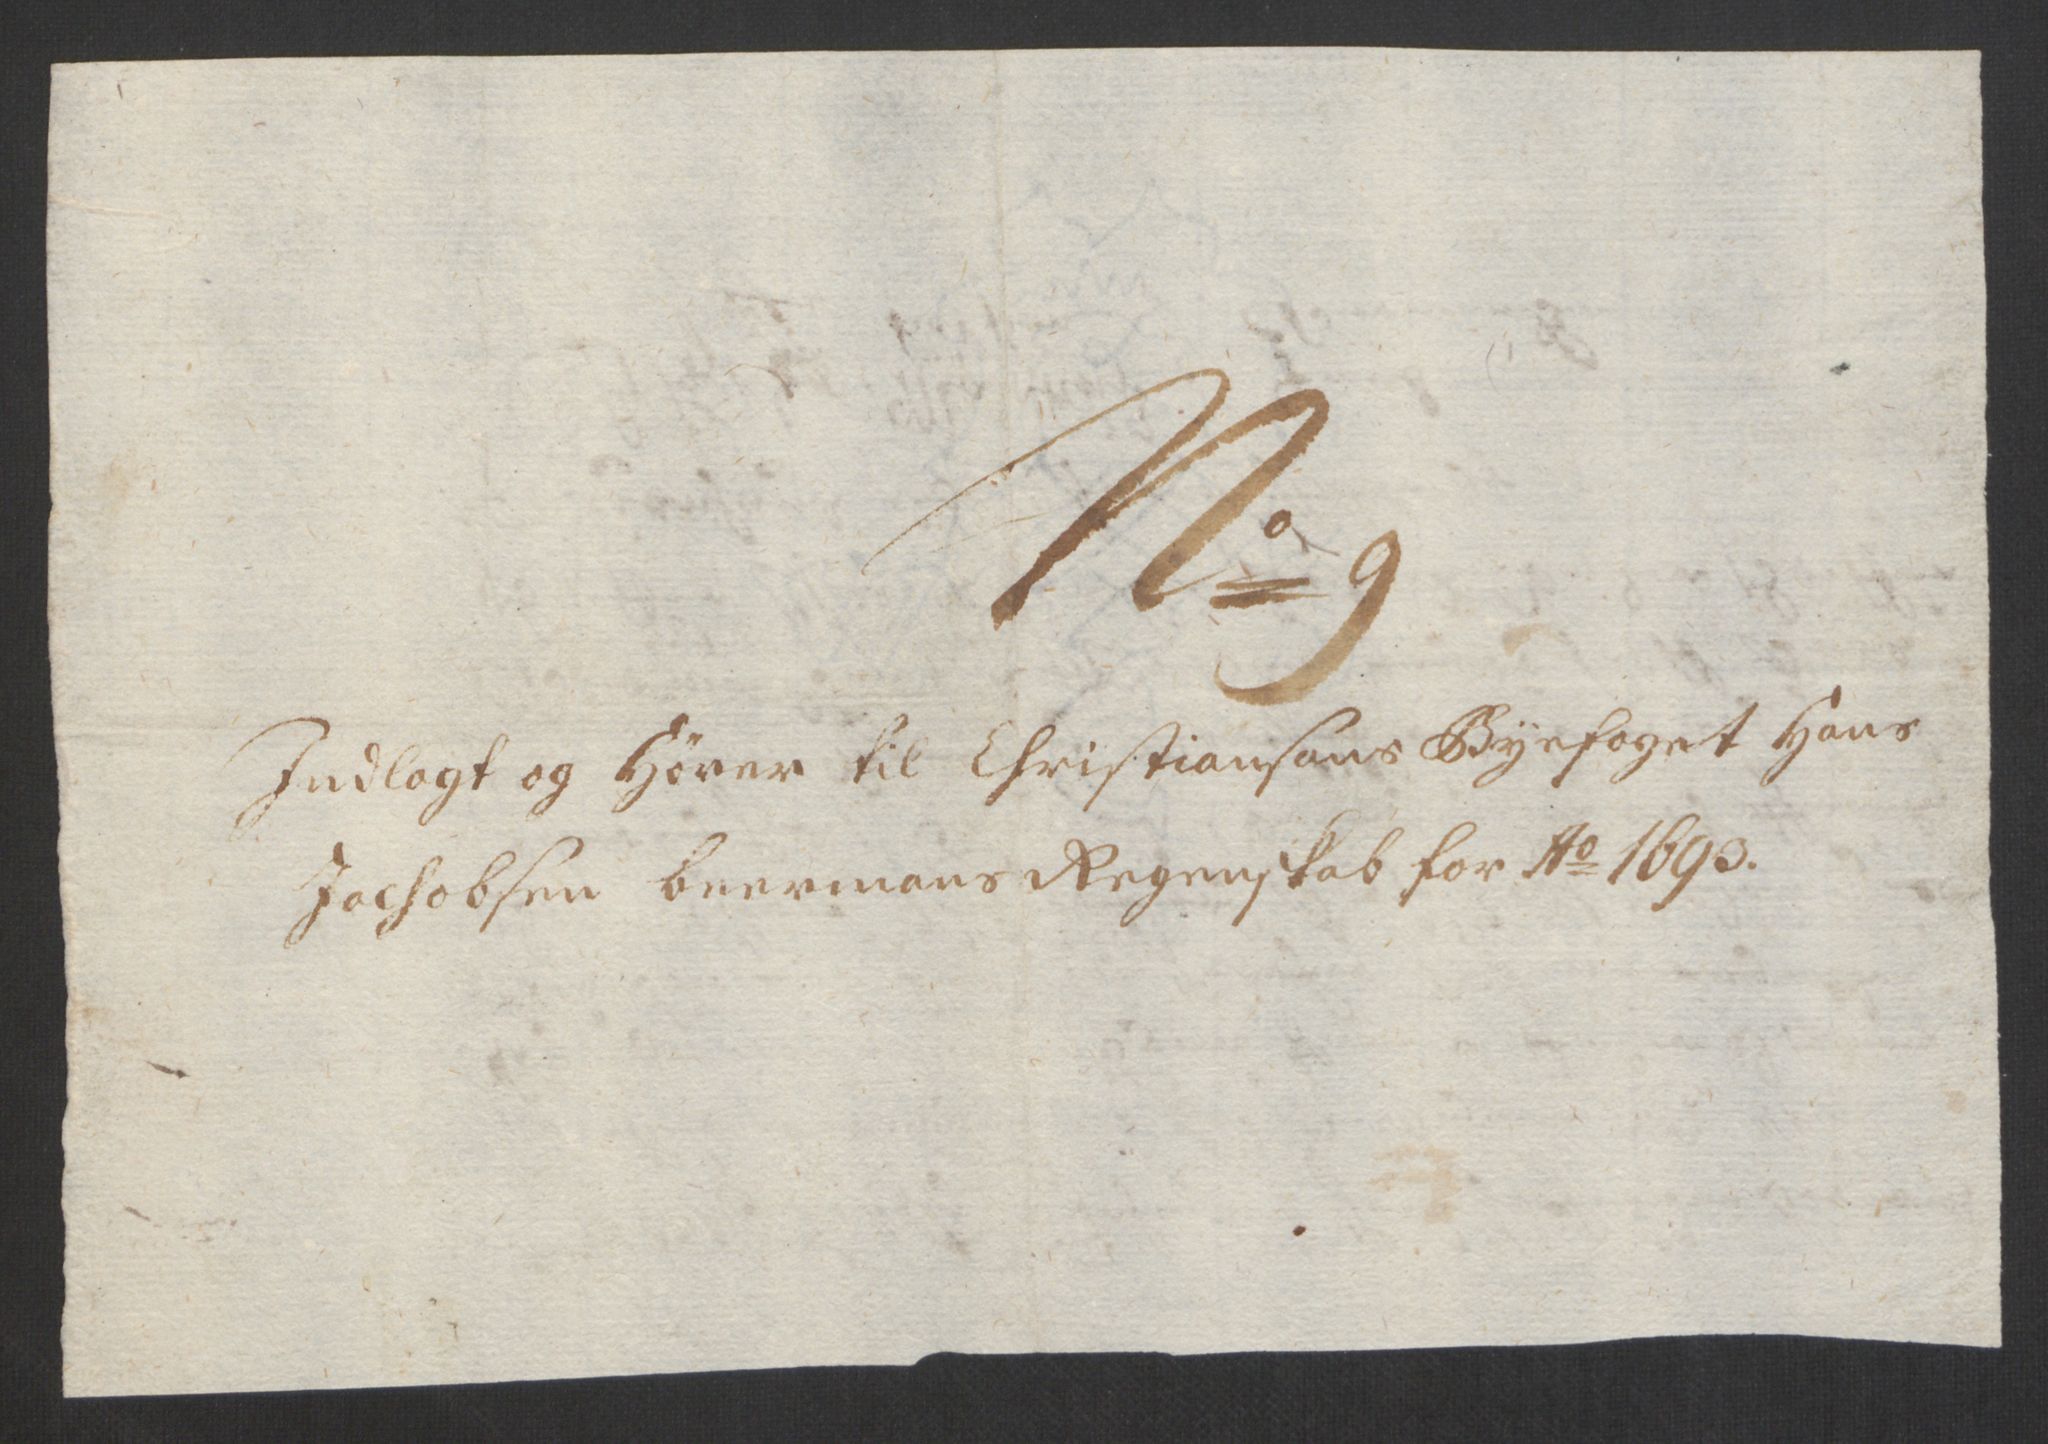 No 9
Indlagt og Hörer til Christiansans Byefoget Hans
Jachobsen beermans Regenskab for Ao 1693.